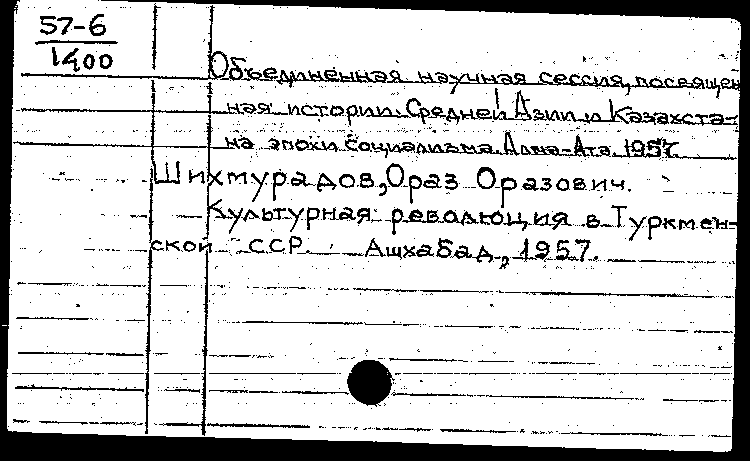 57-6
1400
Объединенная научная сессия, посвящен
ная истории Средней Азии и Казахста-
на эпохи социализма. Алма-Ата. 1957.
Шихмурадов, Ораз Оразович.
Культурная революция в Туркмен-
ской ССР. Ашхабад, 1957.